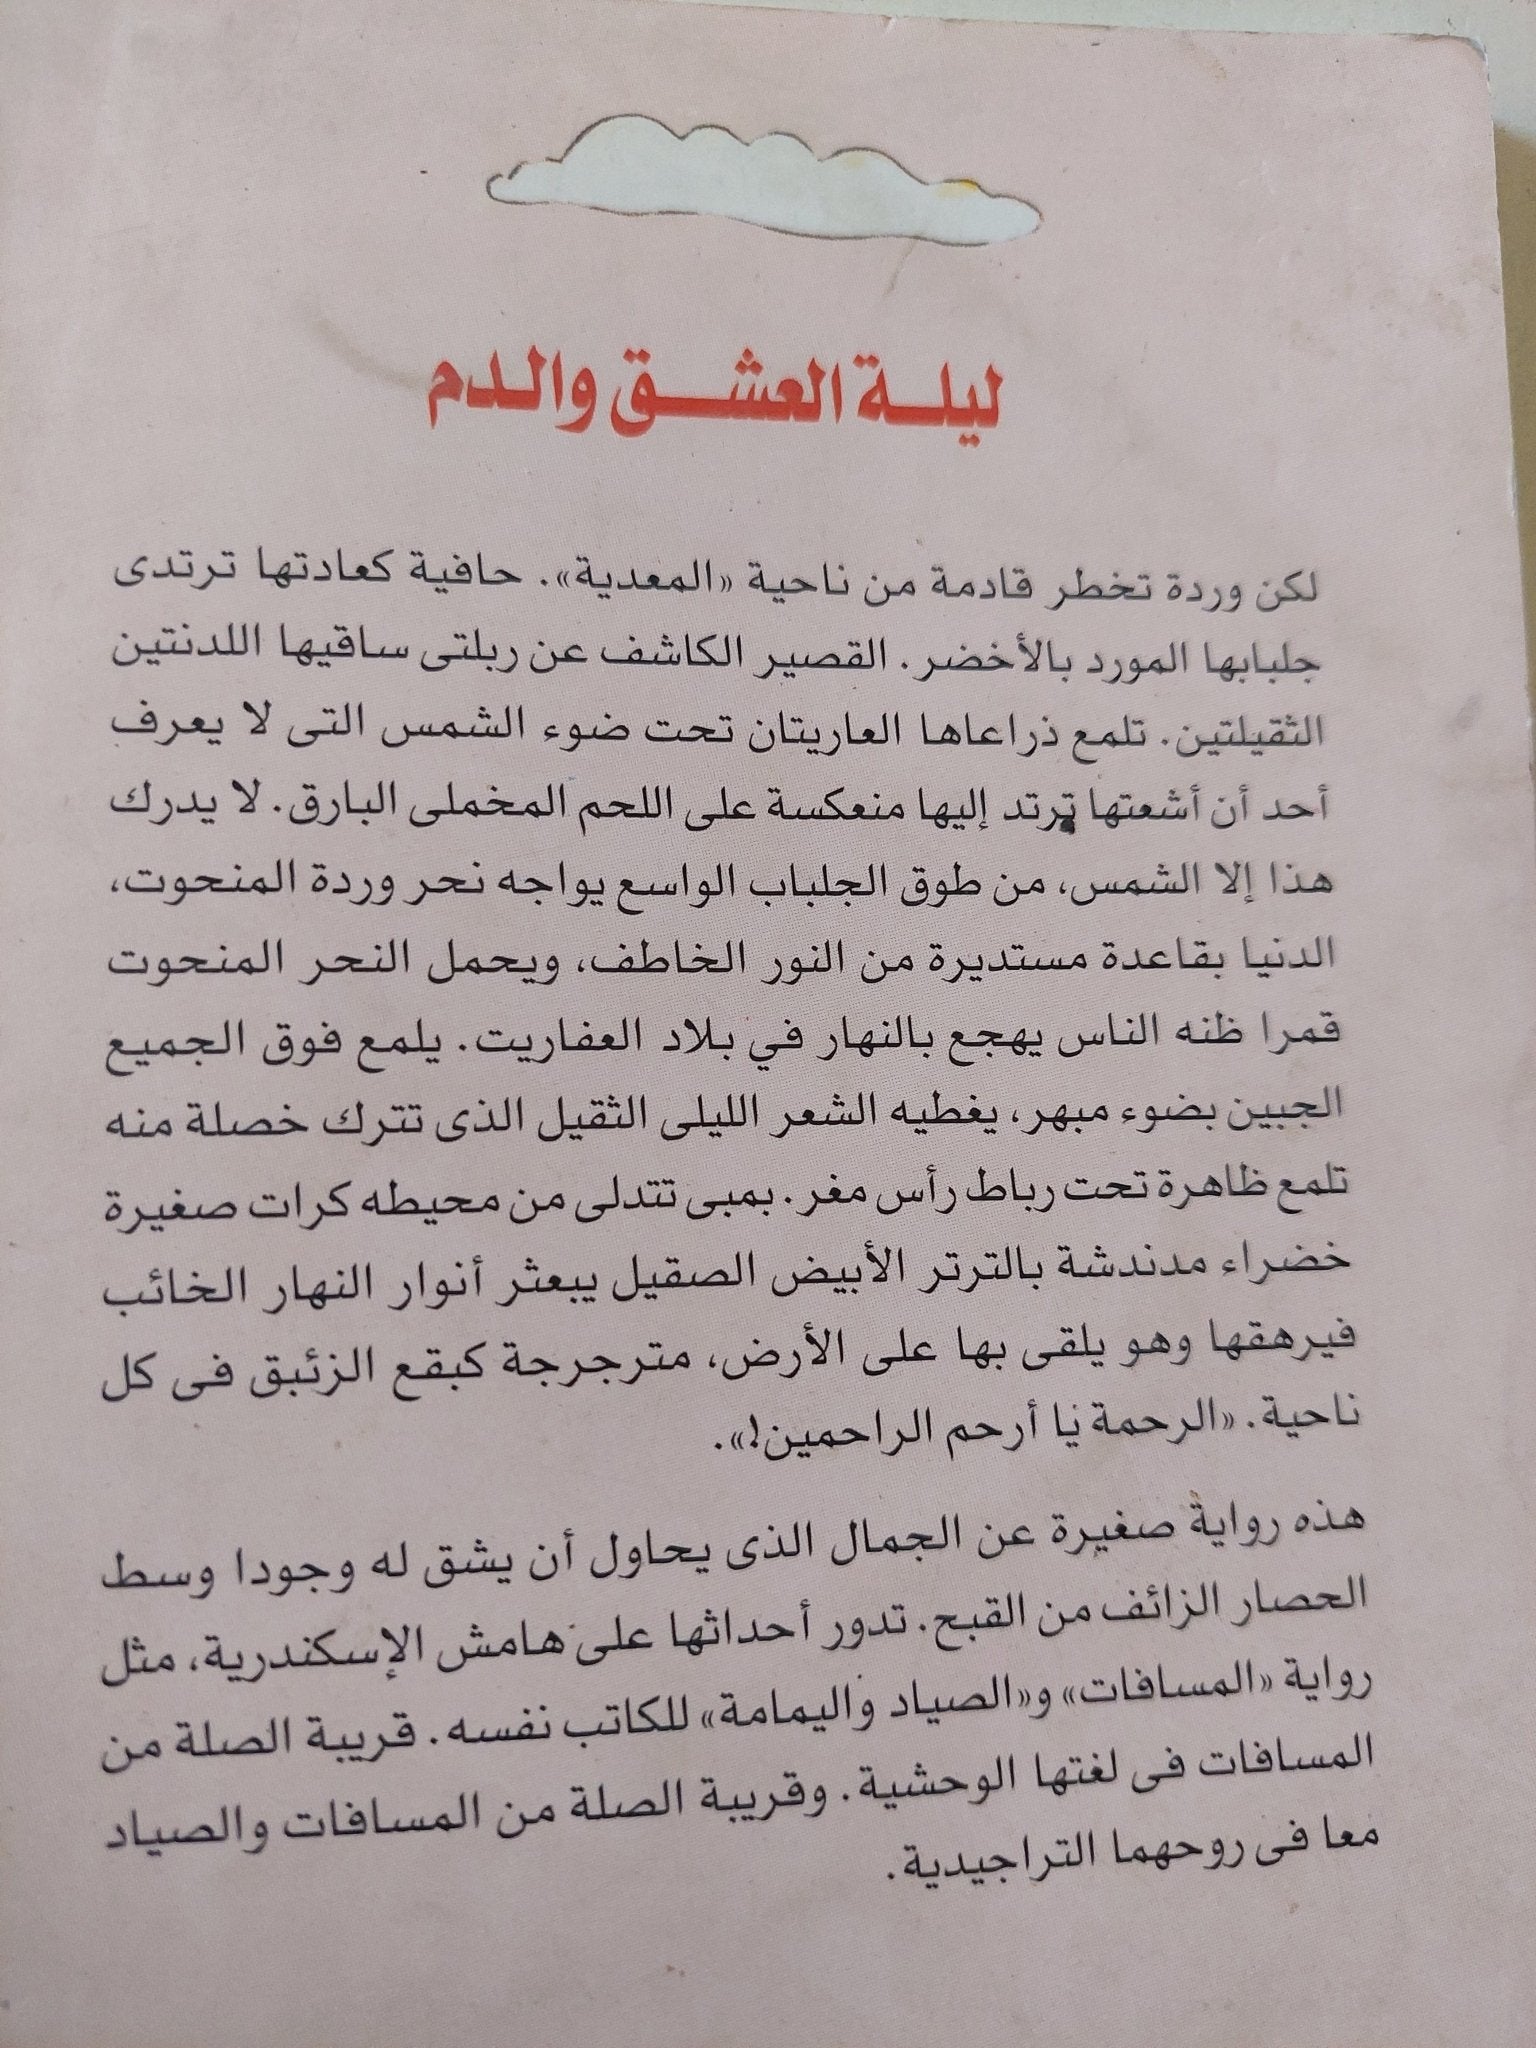 ليلة العشق والدم
لكن وردة تخطر قادمة من ناحية «المعدية». حافية كعادتها ترتدى
جلبابها المورد بالأخضر. القصير الكاشف عن ربلتى ساقيها اللدنتين
الثقيلتين. تلمع ذراعاها العاريتان تحت ضوء الشمس التى لا يعرف
أحد أن أشعتها ترتد إليها منعكسة على اللحم المخملى البارق. لا يدرك
هذا إلا الشمس، من طوق الجلباب الواسع يواجه نحر وردة المنحوت،
الدنيا بقاعدة مستديرة من النور الخاطف، ويحمل النحر المنحوت
قمرا ظنه الناس يهجع بالنهار في بلاد العفاريت. يلمع فوق الجميع
الجبين بضوء مبهر، يغطيه الشعر الليلى الثقيل الذى تترك خصلة منه
تلمع ظاهرة تحت رباط رأس مغر. بمبى تتدلى من محيطه كرات صغيرة
خضراء مدندشة بالترتر الأبيض الصقيل يبعثر أنوار النهار الخائب
فيرهقها وهو يلقى بها على الأرض، مترجرجة كبقع الزئبق فى كل
ناحية. «الرحمة يا أرحم الراحمين!».
هذه رواية صغيرة عن الجمال الذى يحاول أن يشق له وجودا وسط
الحصار الزائف من القبح. تدور أحداثها على هامش الإسكندرية، مثل
رواية «المسافات» و«الصياد واليمامة» للكاتب نفسه. قريبة الصلة من
المسافات فى لغتها الوحشية. وقريبة الصلة من المسافات والصياد
معا فى روحهما التراجيدية.